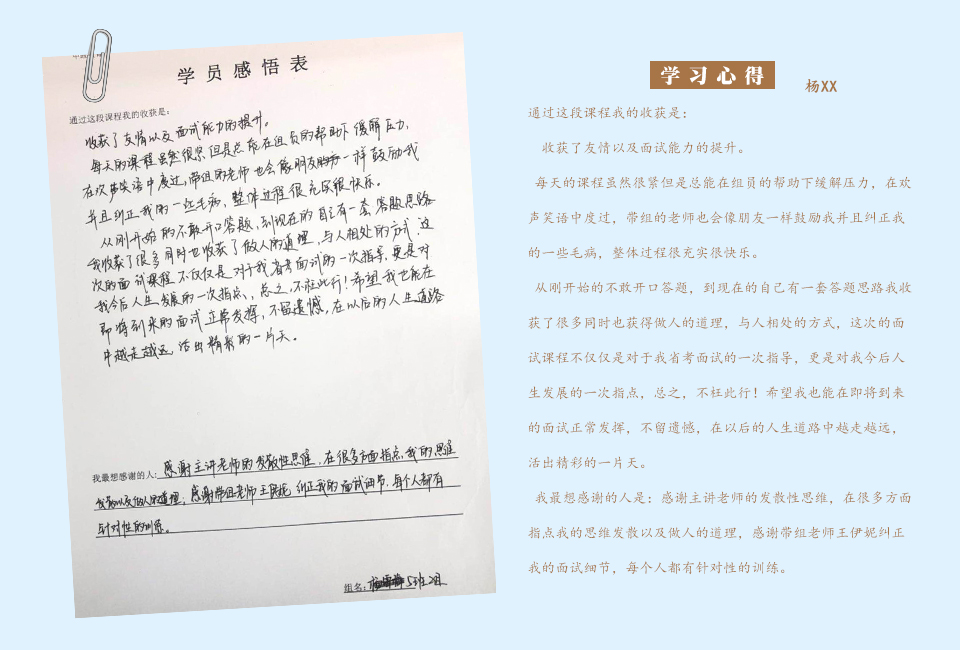 学员感悟表
通过这段课程我的收获是：
收获了友情以及面试能力的提升。
每天的课程虽然很紧但是总能在组员的帮助下缓解压力，
在欢声笑语中度过，带组的老师也会像朋友一样鼓励我
并且纠正我的一些毛病，整体过程很充实很快乐。
从刚开始的不敢开口答题，到现在的自己有一套答题思路
我收获了很多同时也收获了做人的道理，与人相处的方式，这
次的面试课程不仅仅是对于我省考面试的一次指导，更是对
我今后人生发展的一次指点，总之，不枉此行！希望我也能在
即将到来的面试正常发挥，不留遗憾，在以后的人生道路
中越走越远，活出精彩的一片天。
我最想感谢的人：感谢主讲老师的发散性思维，在很多方面指点我的思维
发散以及做人的道理，感谢带组老师王伊妮纠正我的面试细节，每个人都有
针对性的训练。
组名：5班2组
学习心得
杨XX
通过这段课程我的收获是：
收获了友情以及面试能力的提升。
每天的课程虽然很紧但是总能在组员的帮助下缓解压力，在欢
声笑语中度过，带组的老师也会像朋友一样鼓励我并且纠正我
的一些毛病，整体过程很充实很快乐。
从刚开始的不敢开口答题，到现在的自己有一套答题思路我收
获了很多同时也获得做人的道理，与人相处的方式，这次的面
试课程不仅仅是对于我省考面试的一次指导，更是对我今后人
生发展的一次指点，总之，不枉此行！希望我也能在即将到来
的面试正常发挥，不留遗憾，在以后的人生道路中越走越远，
活出精彩的一片天。
我最想感谢的人是：感谢主讲老师的发散性思维，在很多方面
指点我的思维发散以及做人的道理，感谢带组老师王伊妮纠正
我的面试细节，每个人都有针对性的训练。